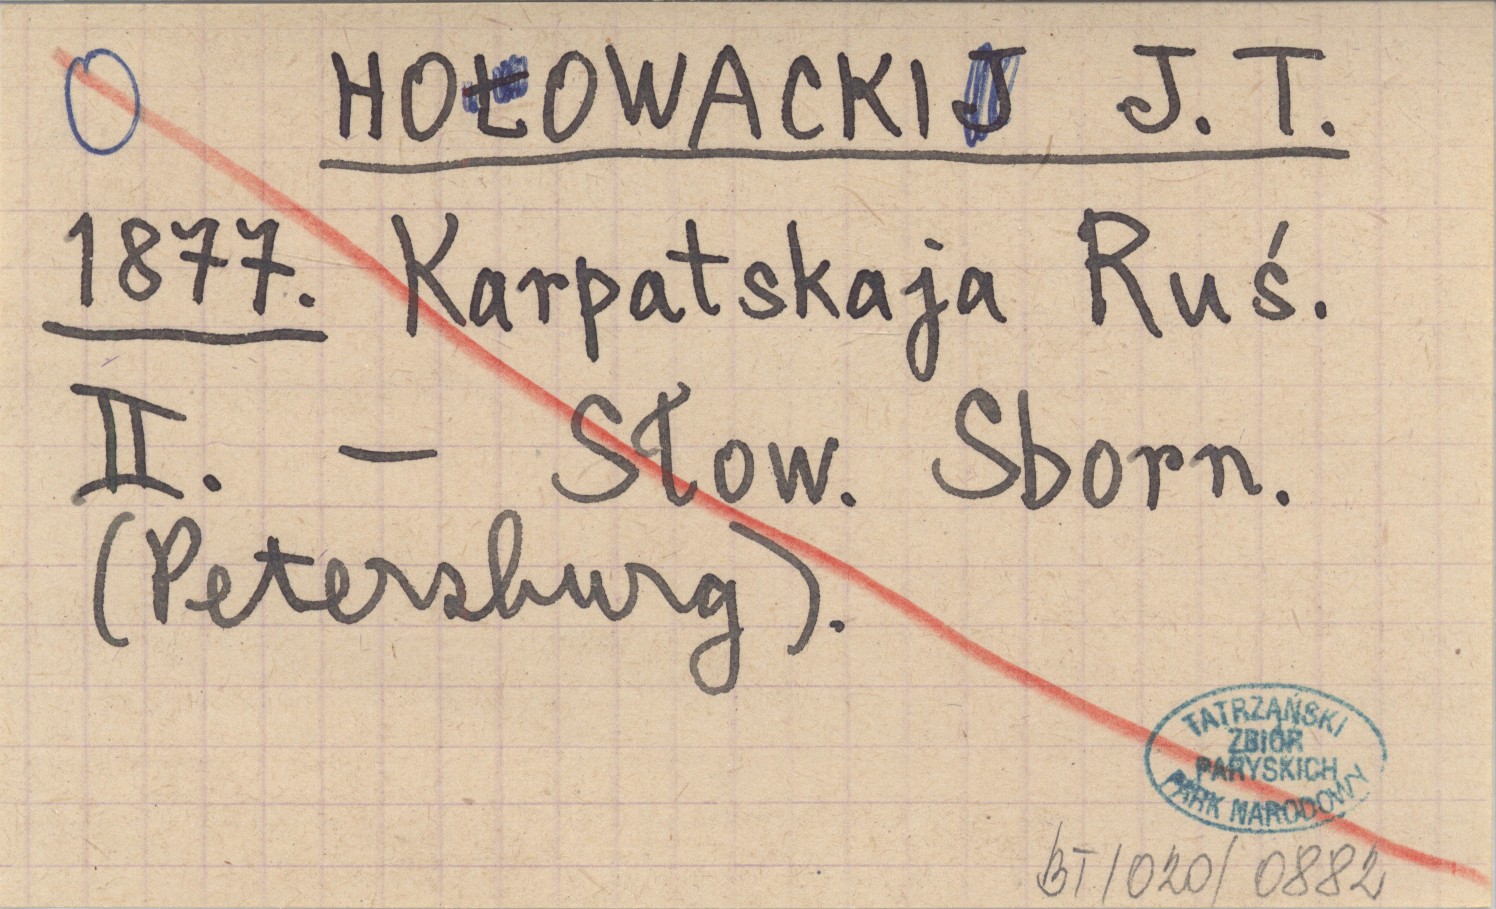 HOŁOWACKIJ J. T.
1877. Karpatskaja Ruś.
II. — Słow. Sborn.
(Petersburg).
TATRZAŃSKI
ZBIÓR
PARYSKICH
PARK NARODOWY
BT/020/0882